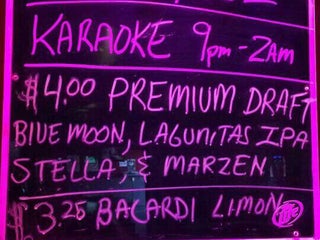 KARAOKE 9pm-2am
$4.00 PREMIUM DRAFT
BLUE MOON, LAGUNITAS IPA
STELLA, & MARZEN
$3.25 BACARDI LIMON
Lite